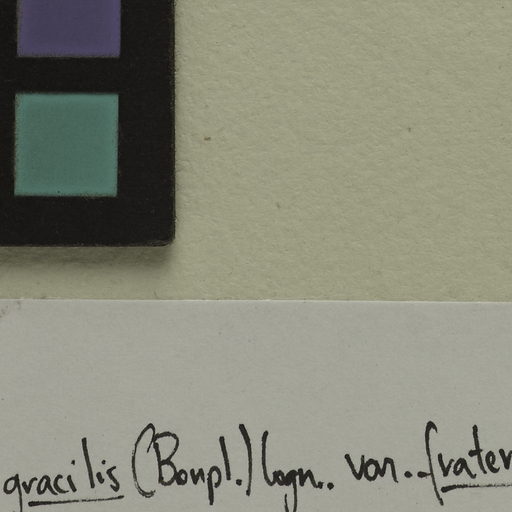 gracilis (Bonpl.) Cogn.. var. frater